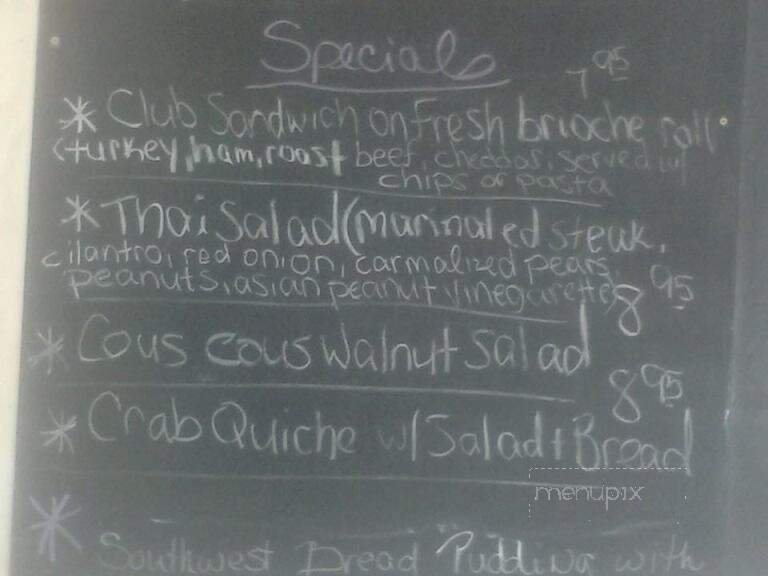 Specials
7 95
* Club Sandwich on fresh brioche roll
(turkey, ham, roast beef, cheddar, served w/
chips or pasta
* Thai Salad (marinated steak,
cilantro, red onion, carmalized pears,
peanuts, asian peanut vinegarette)
8 95
* Cous cous Walnut Salad
8 95
* Crab Quiche w/ Salad + Bread
menupix
* Southwest Bread Pudding with